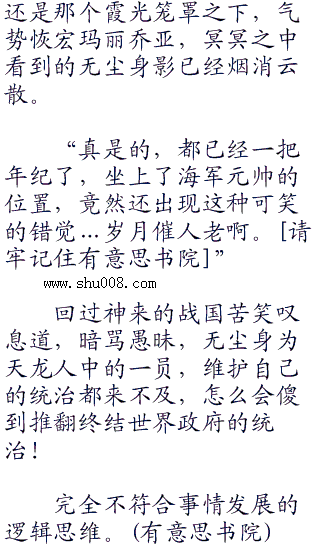 还是那个霞光笼罩之下，气
势恢宏玛丽乔亚，冥冥之中
看到的无尘身影已经烟消云
散。
“真是的，都已经一把
年纪了，坐上了海军元帅的
位置，竟然还出现这种可笑
的错觉…岁月催人老啊。[请
牢记住有意思书院]”
www.shu008.com
回过神来的战国苦笑叹
息道，暗骂愚昧，无尘身为
天龙人中的一员，维护自己
的统治都来不及，怎么会傻
到推翻终结世界政府的统
治！
完全不符合事情发展的
逻辑思维。(有意思书院)